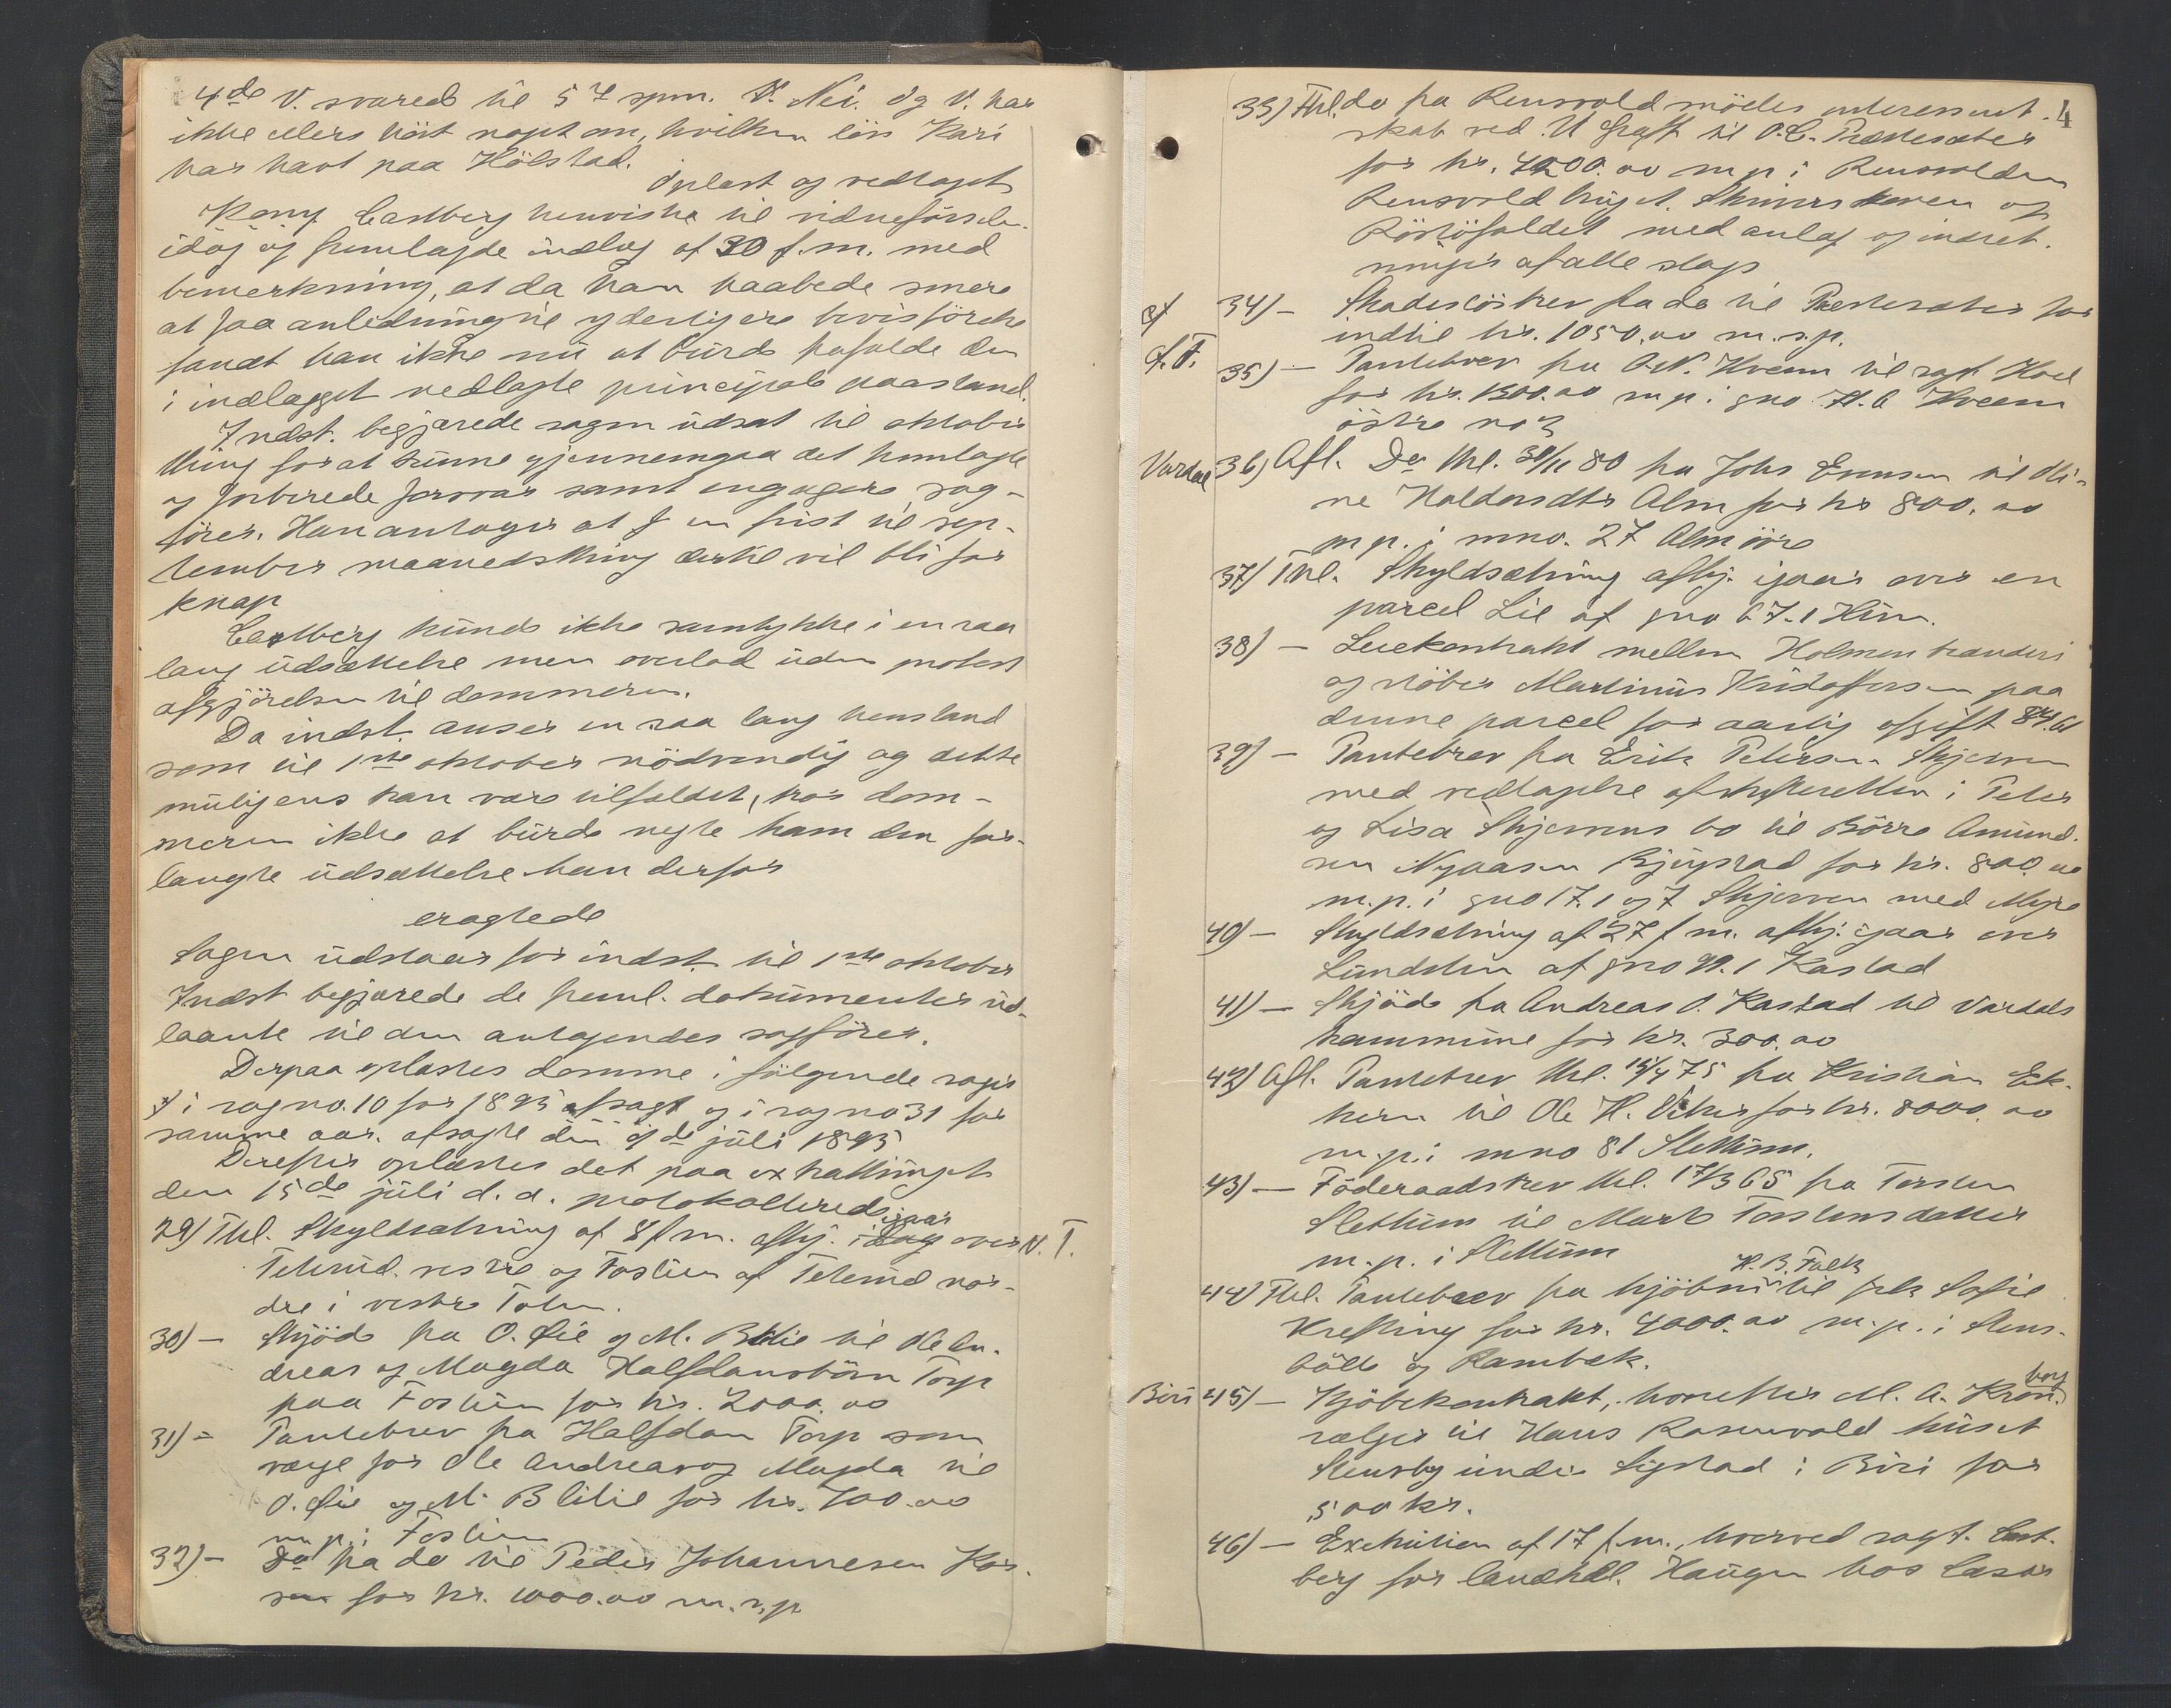 4de V. svarede til 5 7 spm. V. Nei. Og V. har
ikke ellers hört noget om, hvilken lön Kari
har havt paa Hölstad.
Oplæst og vedtaget
Castberg henviste til vidneförselen
idag og fremlagde indlæg af 30 f.m. med
bemerkning, at da han haabede senere
at faa anledning til yderligere bevisförelse
fandt han ikke nu at burde frafalde den
i indlægget nedlagte principale paastand.
Indst. begjærede sagen udsat til oktober
thing for at kunne gjennemgaa det fremlagte
og forberede forsvar samt engagere sag-
förer. Han antager at en frist til sep-
tember maanedsthing dertil vil bli for
knap
Castberg kunde ikke samtykke i en saa
lang udsættelse men overlod uden protest
afgjörelsen til dommeren.
Da indst. anser en saa lang henstand
som til 1ste oktober nödvendig og dette
muligens kan være tilfældet, tror dom-
meren ikke at burde negte ham den for-
langte udsættelse. han derfor
eragtede
Sagen udstaar for indst. til 1ste oktober
Indst begjærede de freml. dokumenter ud-
laante til den antagendes sagförer.
Derpaa oplæstes domme i fölgende sager
i sag no. 10 for 1895 afsagt og i sag no 31 for
samme aar. afsagte den de juli 1895
Derefter oplæstes det paa extrathinget
den 15de juli d. a. protokollerede
igaar
29) Thl. Skyldsætning af 8 f m. afhj. idag over N. T.
Teterud vestre og Foslien af Teterud nor-
dre i vestre Toten.
30) — Skjöde fra O. Lie og M. Blilie til Ole An-
dreas og Magda Halfdansbörn Torp
paa Foslien for kr. 2000.00
31) — Pantebrev fra Halfdan Torp som
verge for Ole Andreas og Magda til
O. Lie og M. Blilie for kr. 700.00
m. p. i Foslien
32) — Do fra do til Peder Johannesen
for kr. 1000.00 m. s. p.
4
33) Thl. do fra Rensvold mödes interessent-
skab ved til O. C. Præstesæter
for kr. 4200.00 m p i Rensvolden
Rensvold bruget. og
med anlæg og indret-
ninger af alle slags
34) — Skadeslösbrev fra do til Præstesæter for
indtil kr. 1050.00 m. s. p.
35) — Pantebrev fra Kveem til sagf. Hoel
for kr. 1300.00 m p. i gno Kveem
östre no 3
Vardal 36) Afl. Do thl. 30/11 80 fra Johs Evensen til Oli-
ne Haldorsdtr Alm for kr 800.00
m p. i mno. 27 Alm övre
37) Thl. Skyldsætning afhj. igaar over en
parcel Lie af gno 67.1 Hun.
38) — Leiekontrakt mellem Holmen brænderi
og stöber Martinius Kristoffersen paa
denne parcel for aarlig afgift 84.61
39) — Pantebrev fra Erik Petersen Skjerven
med vedtagelse af skifteretten i Peter
og Lisa Skjervens bo til Börre Amund-
sen Nyaasen Bjugstad for kr. 800.00
m. p. i gno 17.1 og 7 Skjerven med Myre
40) — Skyldsætning af 27 f m. afhj. igaar over
Lundsten af gno 99.1 Kastad
41) — Skjöde fra Andreas O. Kastad til Vardals
kommune for kr. 300.00
42) Afl. Pantebrev thl. 15/4 75 fra Kristian Ek-
hern til Ole H. Viker for kr. 8000.00
m. p. i mno 81 Slettum.
43) — Föderaadsbrev thl. 17/3 65 fra Torsten
Slettum til Marte Torstensdatter
m. p. i Slettum
H. B. Falk
44) Thl. Pantebrev fra kjöbm til frk Sofie
Krefting for kr. 4000.00 m. p. i Stens-
og Rambek.
Biri 45) — Kjöbekontrakt, hvorefter M. A. Kron-
borg
sælger til Hans Rosenvold huset
Stensby under Sigstad i Biri for
500 kr.
46) — Exekution af 17 f. m., hvorved sagf. Cast-
berg for landhdl. Haugen hos Lasse